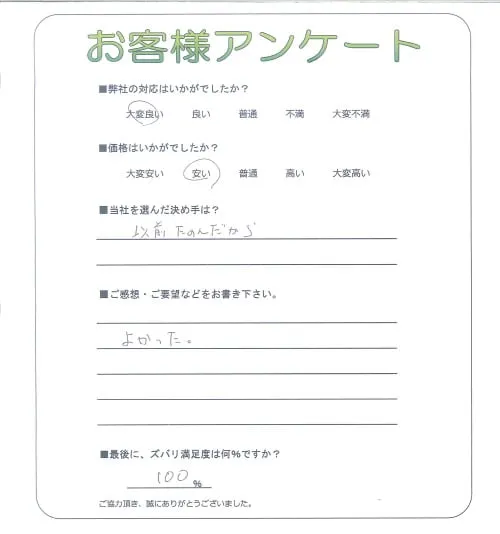 お客様アンケート
■弊社の対応はいかがでしたか？
大変良い 良い 普通 不満 大変不満
■価格はいかがでしたか？
大変安い 安い 普通 高い 大変高い
■当社を選んだ決め手は？
以前たのんだから
■ご感想・ご要望などをお書き下さい。
よかった。
■最後に、ズバリ満足度は何％ですか？
100％
ご協力頂き、誠にありがとうございました。